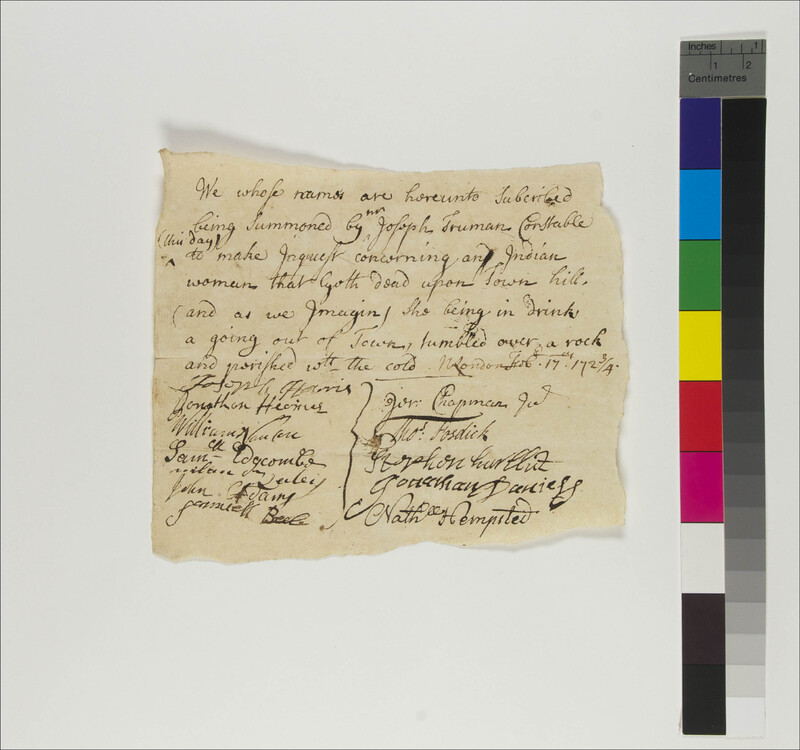 We whose names are hereunto Subcribed
being Summoned by mr Joseph Truman Constable
(this day)
to make Inquest concerning an Indian
woman that lyeth dead upon Town hill.
(and as we Imagin) She being in Drink
a going out of Town, tumbled over a rock
and perished wth the cold. NLondon Feb. 17th 1723/4.
Joseph Harris
Jonathan
William
Samll Edgcombe
John Adams
Sammuell Beele
Jer: Chapman Jur
Thos: Fosdick
Stephen hurllbut
Jonathan Daniells
Nathll Hempsted
Inches 1
1 2
Centimetres